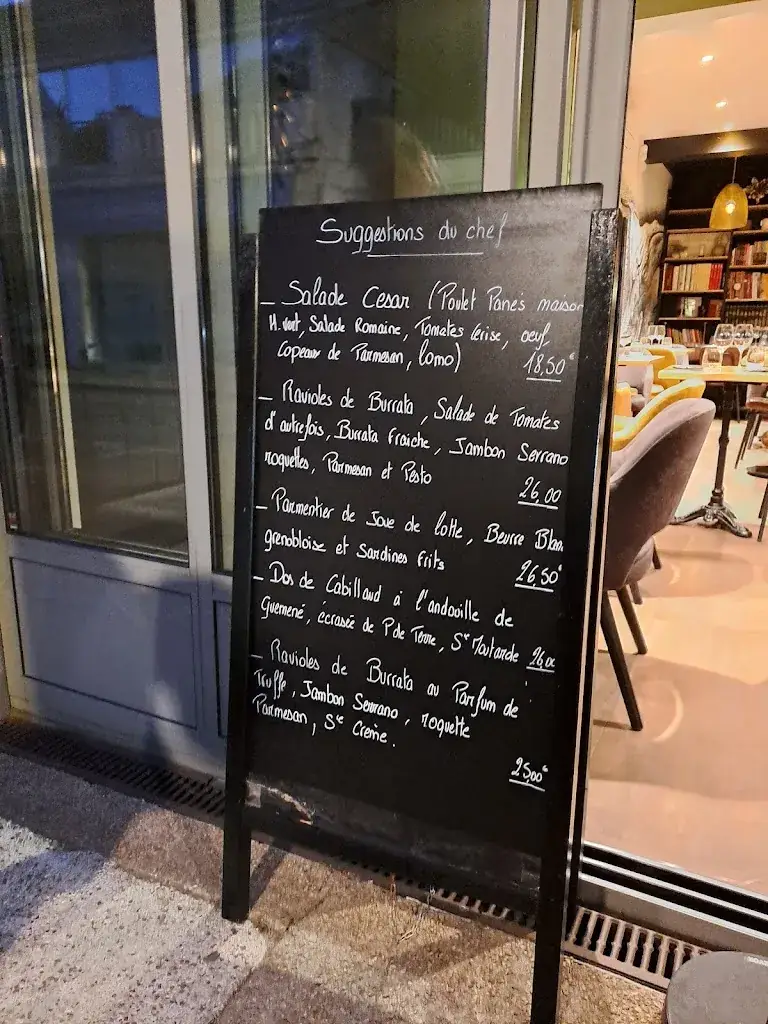 Suggestions du chef
_ Salade Cesar (Poulet Panés maison
H. vert, Salade Romaine, Tomates Cerise, oeuf,
Copeaux de Parmesan, lomo) 18,50€
_ Ravioles de Burrata, Salade de Tomates
d'autrefois, Burrata Fraiche, Jambon Serrano
roquettes, Parmesan et Pesto 26,00
_ Parmentier de Joue de lotte, Beurre Blan
grenobloise et Sardines frits 26,50€
_ Dos de Cabillaud à l'andouille de
Guemené, écrasée de P de Terre, Sce Moutarde 26,00
_ Ravioles de Burrata au Parfum de
Truffe, Jambon Serrano, roquette
Parmesan, Sce Creme. 25,00€